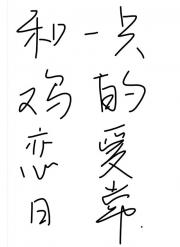 和一只
鸡的
恋爱
日常